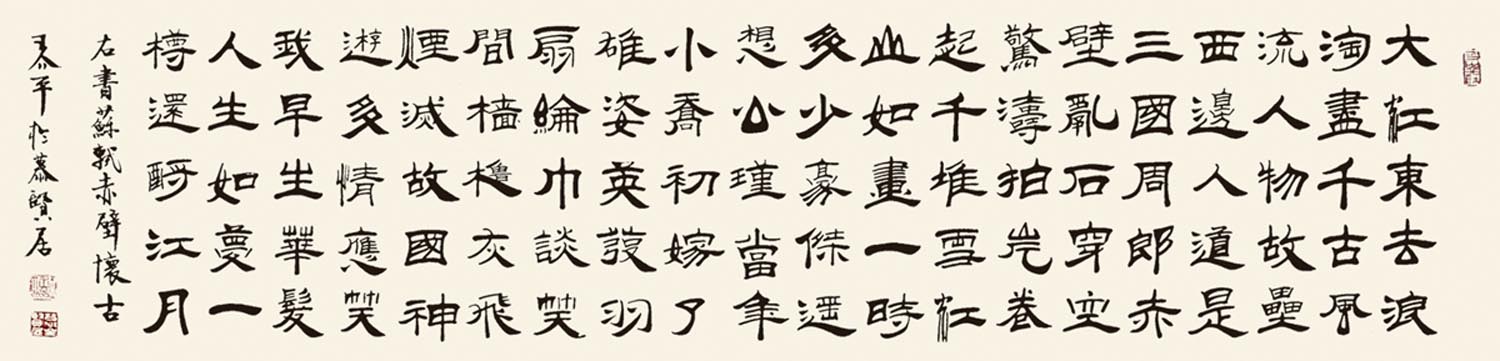 大江東去浪
淘盡千古風
流人物故壘
西邊人道是
三國周郎赤
壁亂石穿空
驚濤拍岸卷
起千堆雪江
山如畫一時
多少豪傑遙
想公瑾當年
小喬初嫁了
雄姿英發羽
扇綸巾談笑
間檣櫓灰飛
煙滅故國神
遊多情應笑
我早生華髮
人生如夢一
樽還酹江月
右書蘇軾赤壁懷古
泰平於慕賢居